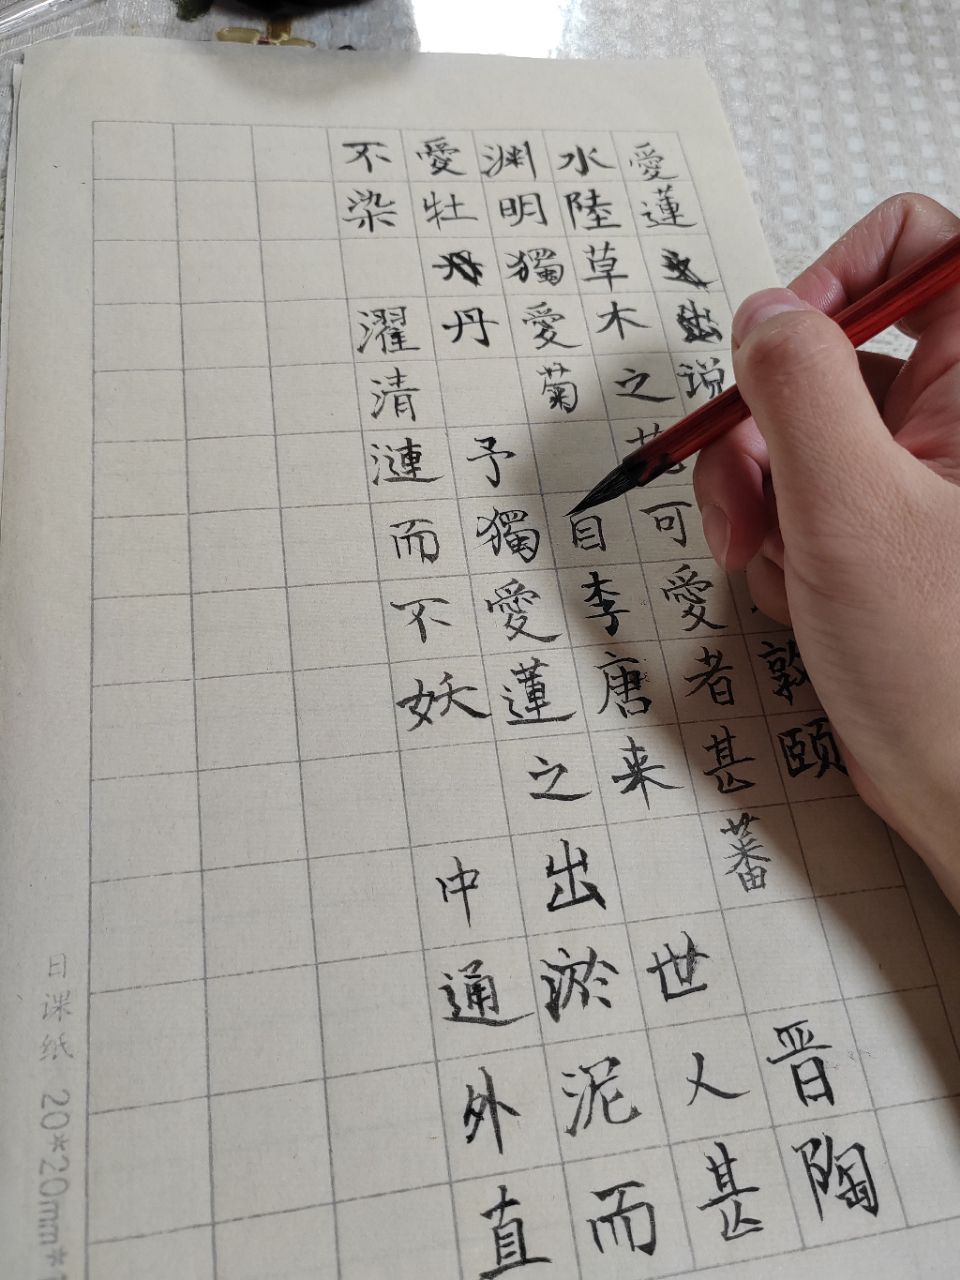 愛蓮说 敦颐
水陸草木之花可愛者甚蕃 晋陶
渊明獨愛菊 自李唐来 世人甚
愛牡丹 予獨愛蓮之出淤泥而
不染 濯清漣而不妖 中通外直
日课纸 20*20mm*